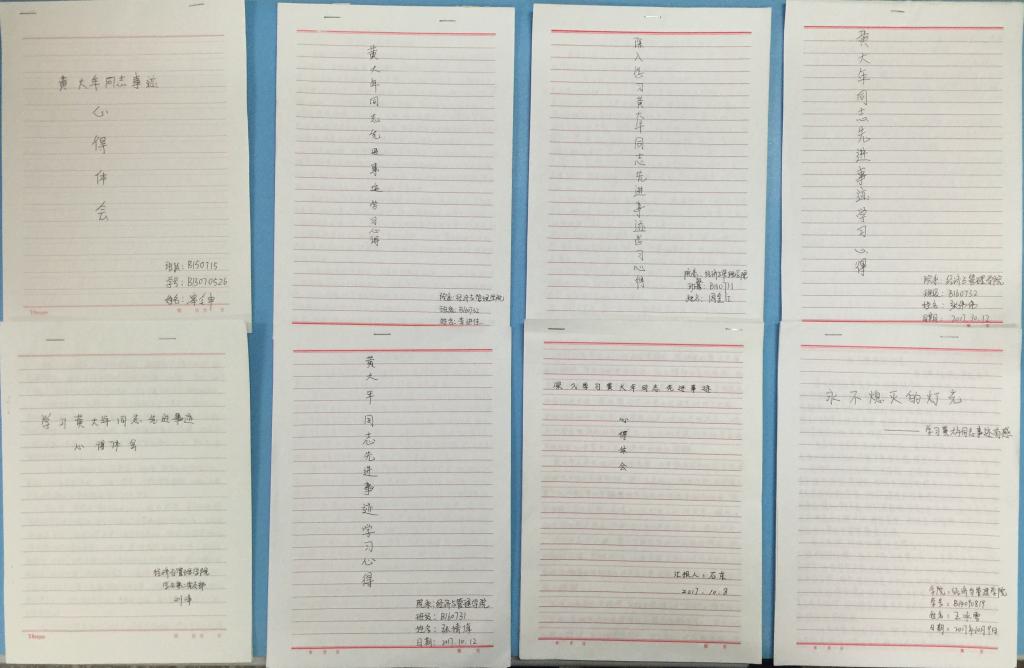 黄大年同志事迹
心得体会
班级：B150715
学号：B15070526
姓名：
黄大年同志先进事迹学习心得
院系：经济与管理学院
班级：B160732
姓名：李
深入学习黄大年同志先进事迹学习心得
院系：经济与管理学院
班级：B150711
姓名：周
黄大年同志先进事迹学习心得
院系：经济与管理学院
班级：B160732
姓名：张
日期：2017.10.12
学习黄大年同志先进事迹
心得体会
经济与管理学院
刘泽
黄大年同志先进事迹学习心得
院系：经济与管理学院
班级：B160731
姓名：张倩倩
日期：2017.10.12
深入学习黄大年同志先进事迹
心得体会
汇报人：石东
2017.10.8
永不熄灭的灯亮
——学习黄大年同志事迹有感
学院：经济与管理学院
学号：B15090819
姓名：王
日期：2017年10月9日